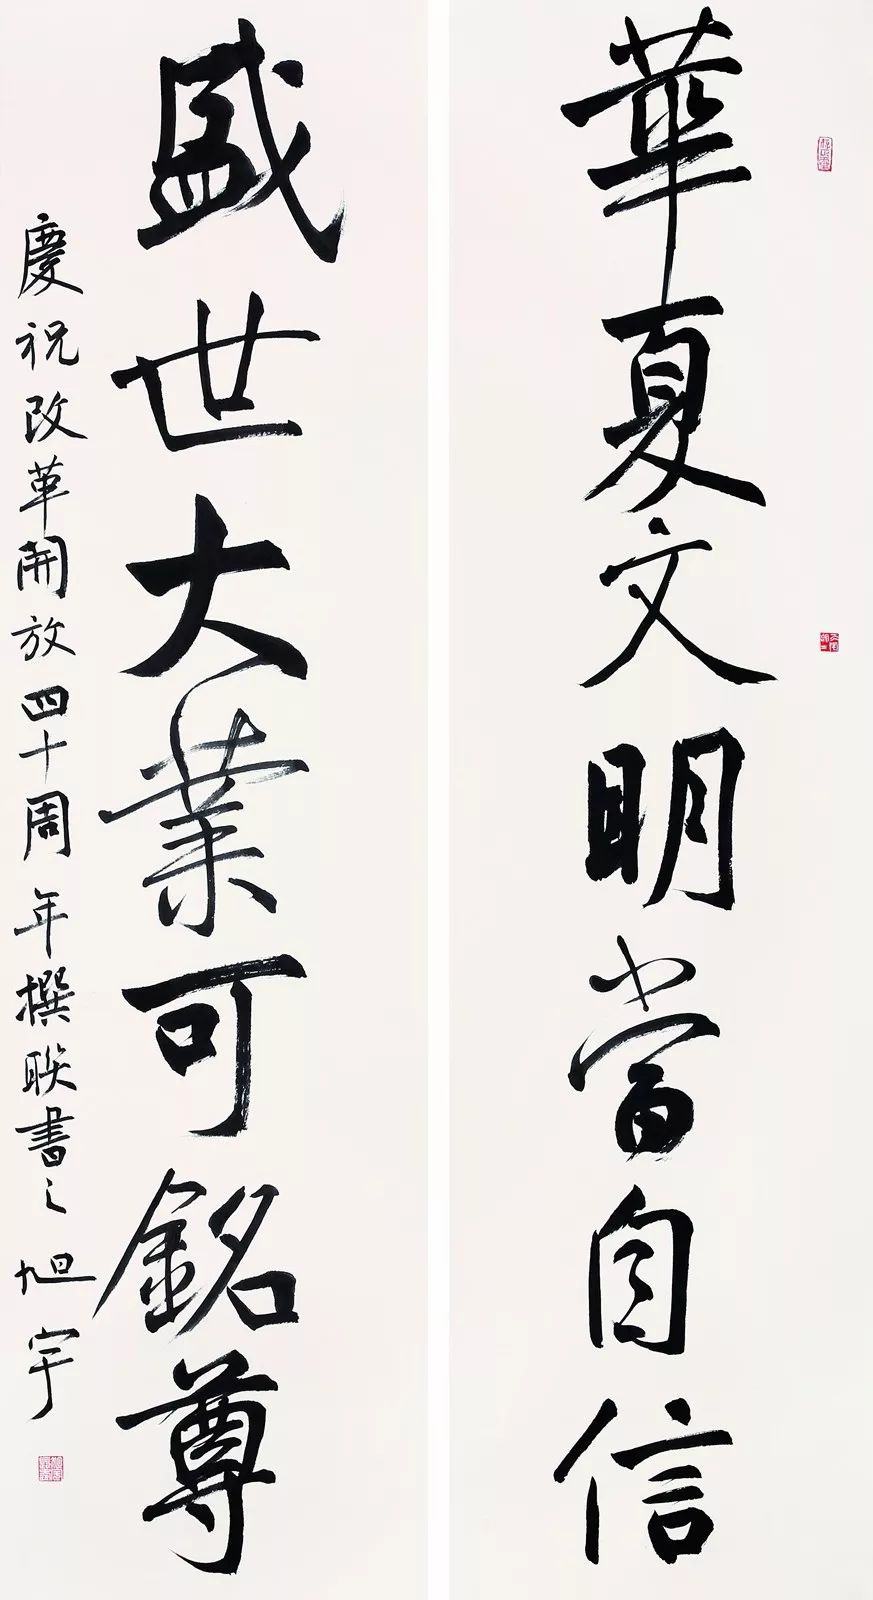 華夏文明當自信
盛世大業可銘尊
慶祝改革開放四十周年撰聯書之旭宇